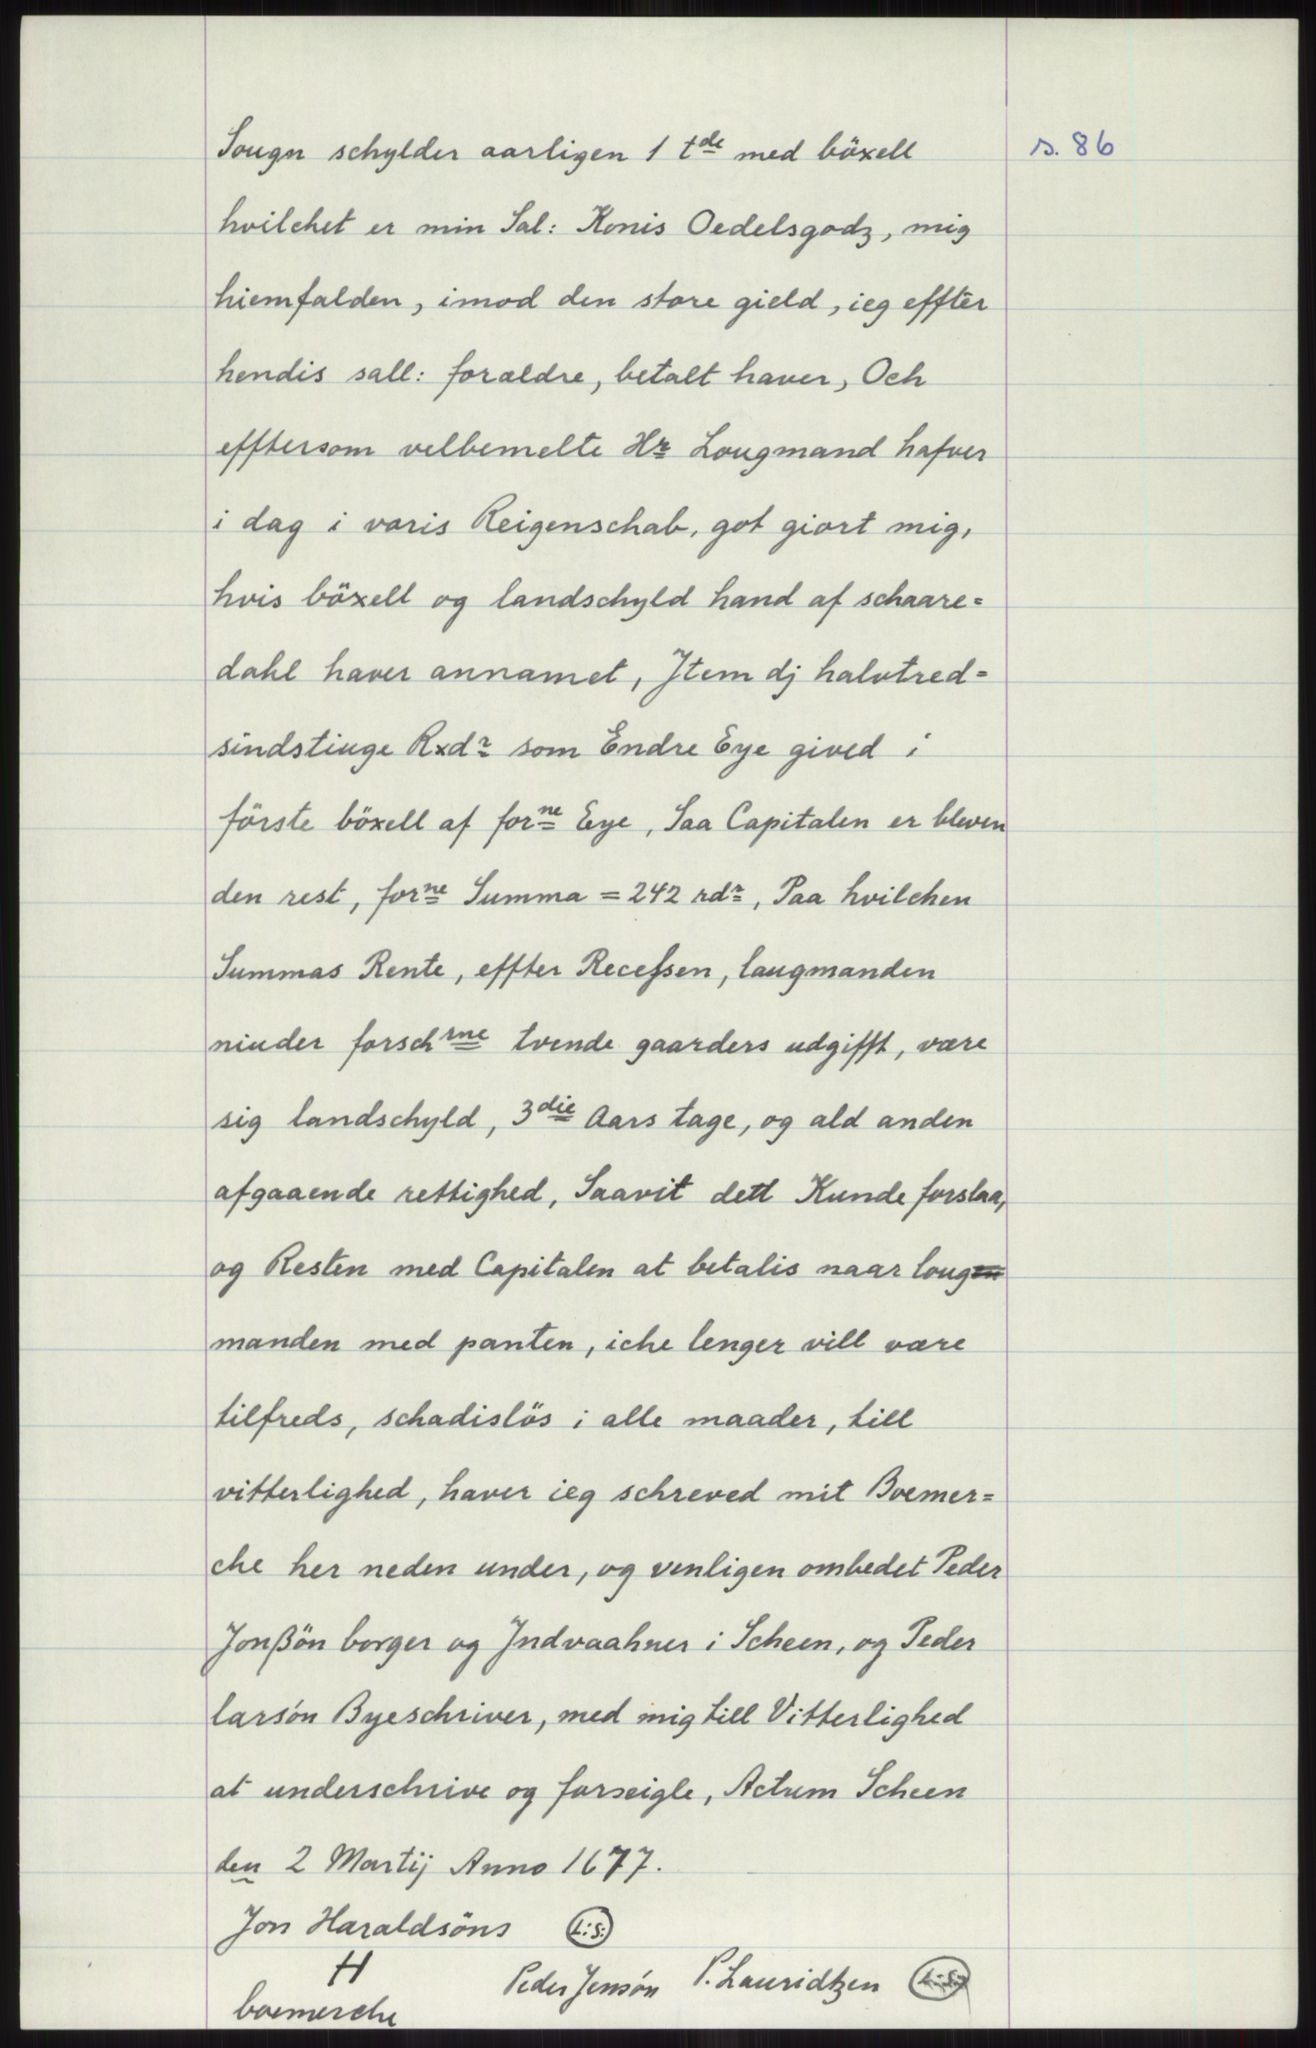 Sougn schylder aarligen 1 tde med böxell
s. 86
hvilchet er min Sal: Konis Oedelsgodz, mig
hiemfalden, imod den store gield, ieg effter
hendis sall: forældre, betalt haver, Och
efftersom velbemelte Hr Lougmand hafver
i dag i voris Reigenschab, got giort mig,
hvis böxell og landschyld hand af schaare=
dahl haver annamet, Jtem dj halvtred=
sindstiuge Rxdr som Endre Eye gived i
förste böxell af forne Eye, Saa Capitalen er bleven
den rest, forne Summa = 242 rdr, Paa hvilchen
Summas Rente, effter Recessen, laugmanden
niuder forschrne tvende gaarders udgifft, være
sig landschyld, 3die Aars tage, og ald anden
afgaaende rettighed, Saavit dett Kunde forslaa,
og Resten med Capitalen at betalis naar loug
manden med panten, iche lenger vill være
tilfreds, schadislös i alle maader, till
vitterlighed, haver ieg schreved mit Boemer=
che her neden under, og venligen ombedet Peder
Jonßön borger og Jndvaahner i Scheen, og Peder
larsón Byeschriver, med mig till Vitterlighed
at underschrive og forseigle, Actum Scheen
den 2 Martij Anno 1677.
Jon Haraldsöns L:S:
H
Peder Jensón P. Lauridtzen L:S:
boemerche